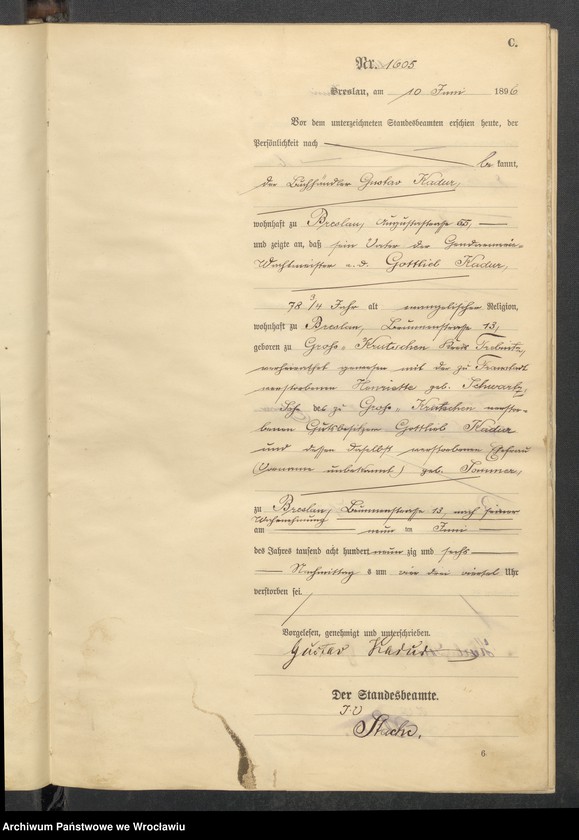 C.
Nr. 1605
Breslau, am 10 Juni 1896
Vor dem unterzeichneten Standesbeamten erschien heute, der
Persönlichkeit nach
be kannt,
der Buchhändler Gustav Kadur,
wohnhaft zu Breslau, Augustastraße 65,
und zeigte an, daß sein Vater der Gendarmerie-
Wachtmeister a. d. Gottlieb Kadur,
78 3/4 Jahr alt evangelischer Religion,
wohnhaft zu Breslau, Brunnenstraße 13,
geboren zu Groß- Krutschen Kreis Trebnitz,
verheirathet gewesen mit der zu Fraustadt
verstorbenen Henriette geb. Schwartz
Sohn des zu Groß- Krutschen verstor-
benen Gutsbesitzers Gottlieb Kadur
und dessen daselbst verstorbenen Ehefrau
(Vorname unbekannt) geb. Sommer,
zu Breslau, Brunnenstraße 13, nach seiner
Wahrnehmung
am neun ten Juni
des Jahres tausend acht hundert neun zig und sechs
Nachmittag s um vier drei viertel Uhr
verstorben sei.
Vorgelesen, genehmigt und unterschrieben.
Gustav Kadur
Der Standesbeamte.
I. V
Stache.
6
Archiwum Państwowe we Wrocławiu